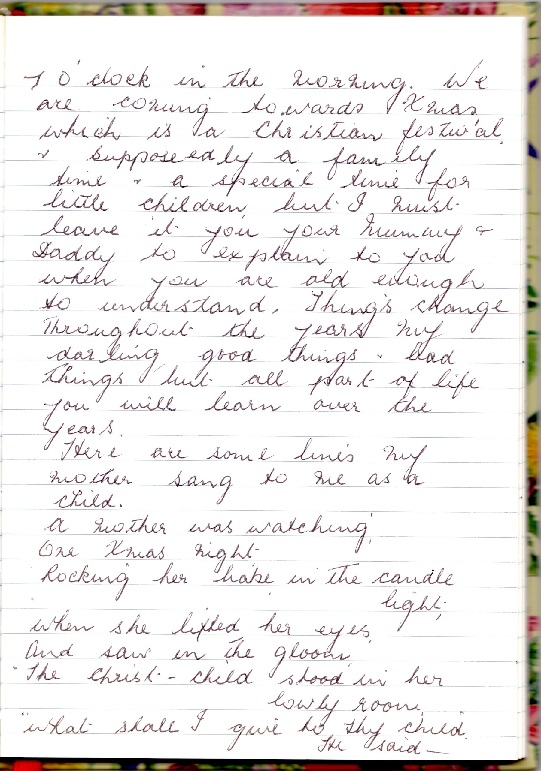 7 O'clock in the morning. We
are coming towards Xmas
which is a Christian festival,
& supposedly a family
time & a special time for
little children, but I must
leave it you your Mummy &
Daddy to explain to you
when you are old enough
to understand. Things change
Throughout the years my
darling good things & bad
things but all part of life
you will learn over the
years.
Here are some lines my
mother sang to me as a
child.
A mother was watching,
One Xmas night
Rocking her babe in the candle
light,
when she lifted her eyes,
And saw in the gloom
"The Christ-child stood in her
lowly room,
"what shall I give to thy child,
He said —